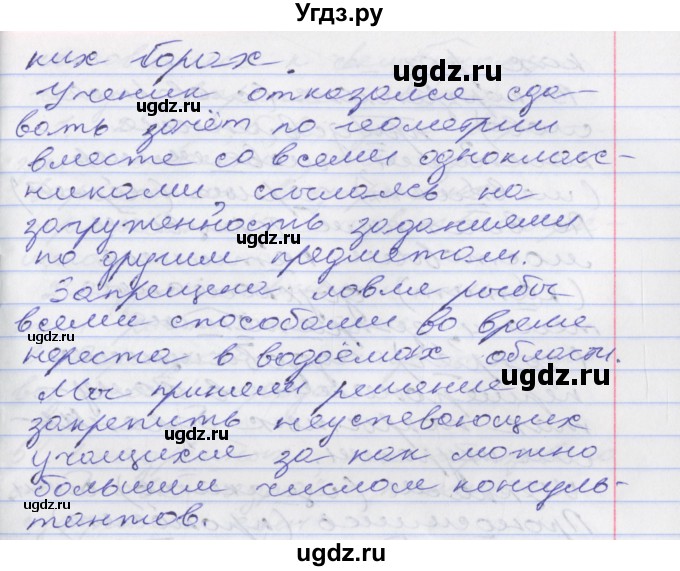 Угдз.ру
ких Горах.
Ученик отказался сда-
вать зачёт по геометрии
вместе со всеми одноклас-
никами, ссылаясь на
загруженность заданиями
по другим предметам.
Запрещена ловля рыбы
всеми способами во время
нереста в водоёмах области.
Мы приняли решение
закрепить неуспевающих
учащихся за как можно
большим числом консуль-
тантов.
ugdz.ru
ugdz.ru
ugdz.ru
ugdz.ru
ugdz.ru
ugdz.ru
ugdz.ru
ugdz.ru
ugdz.ru
ugdz.ru